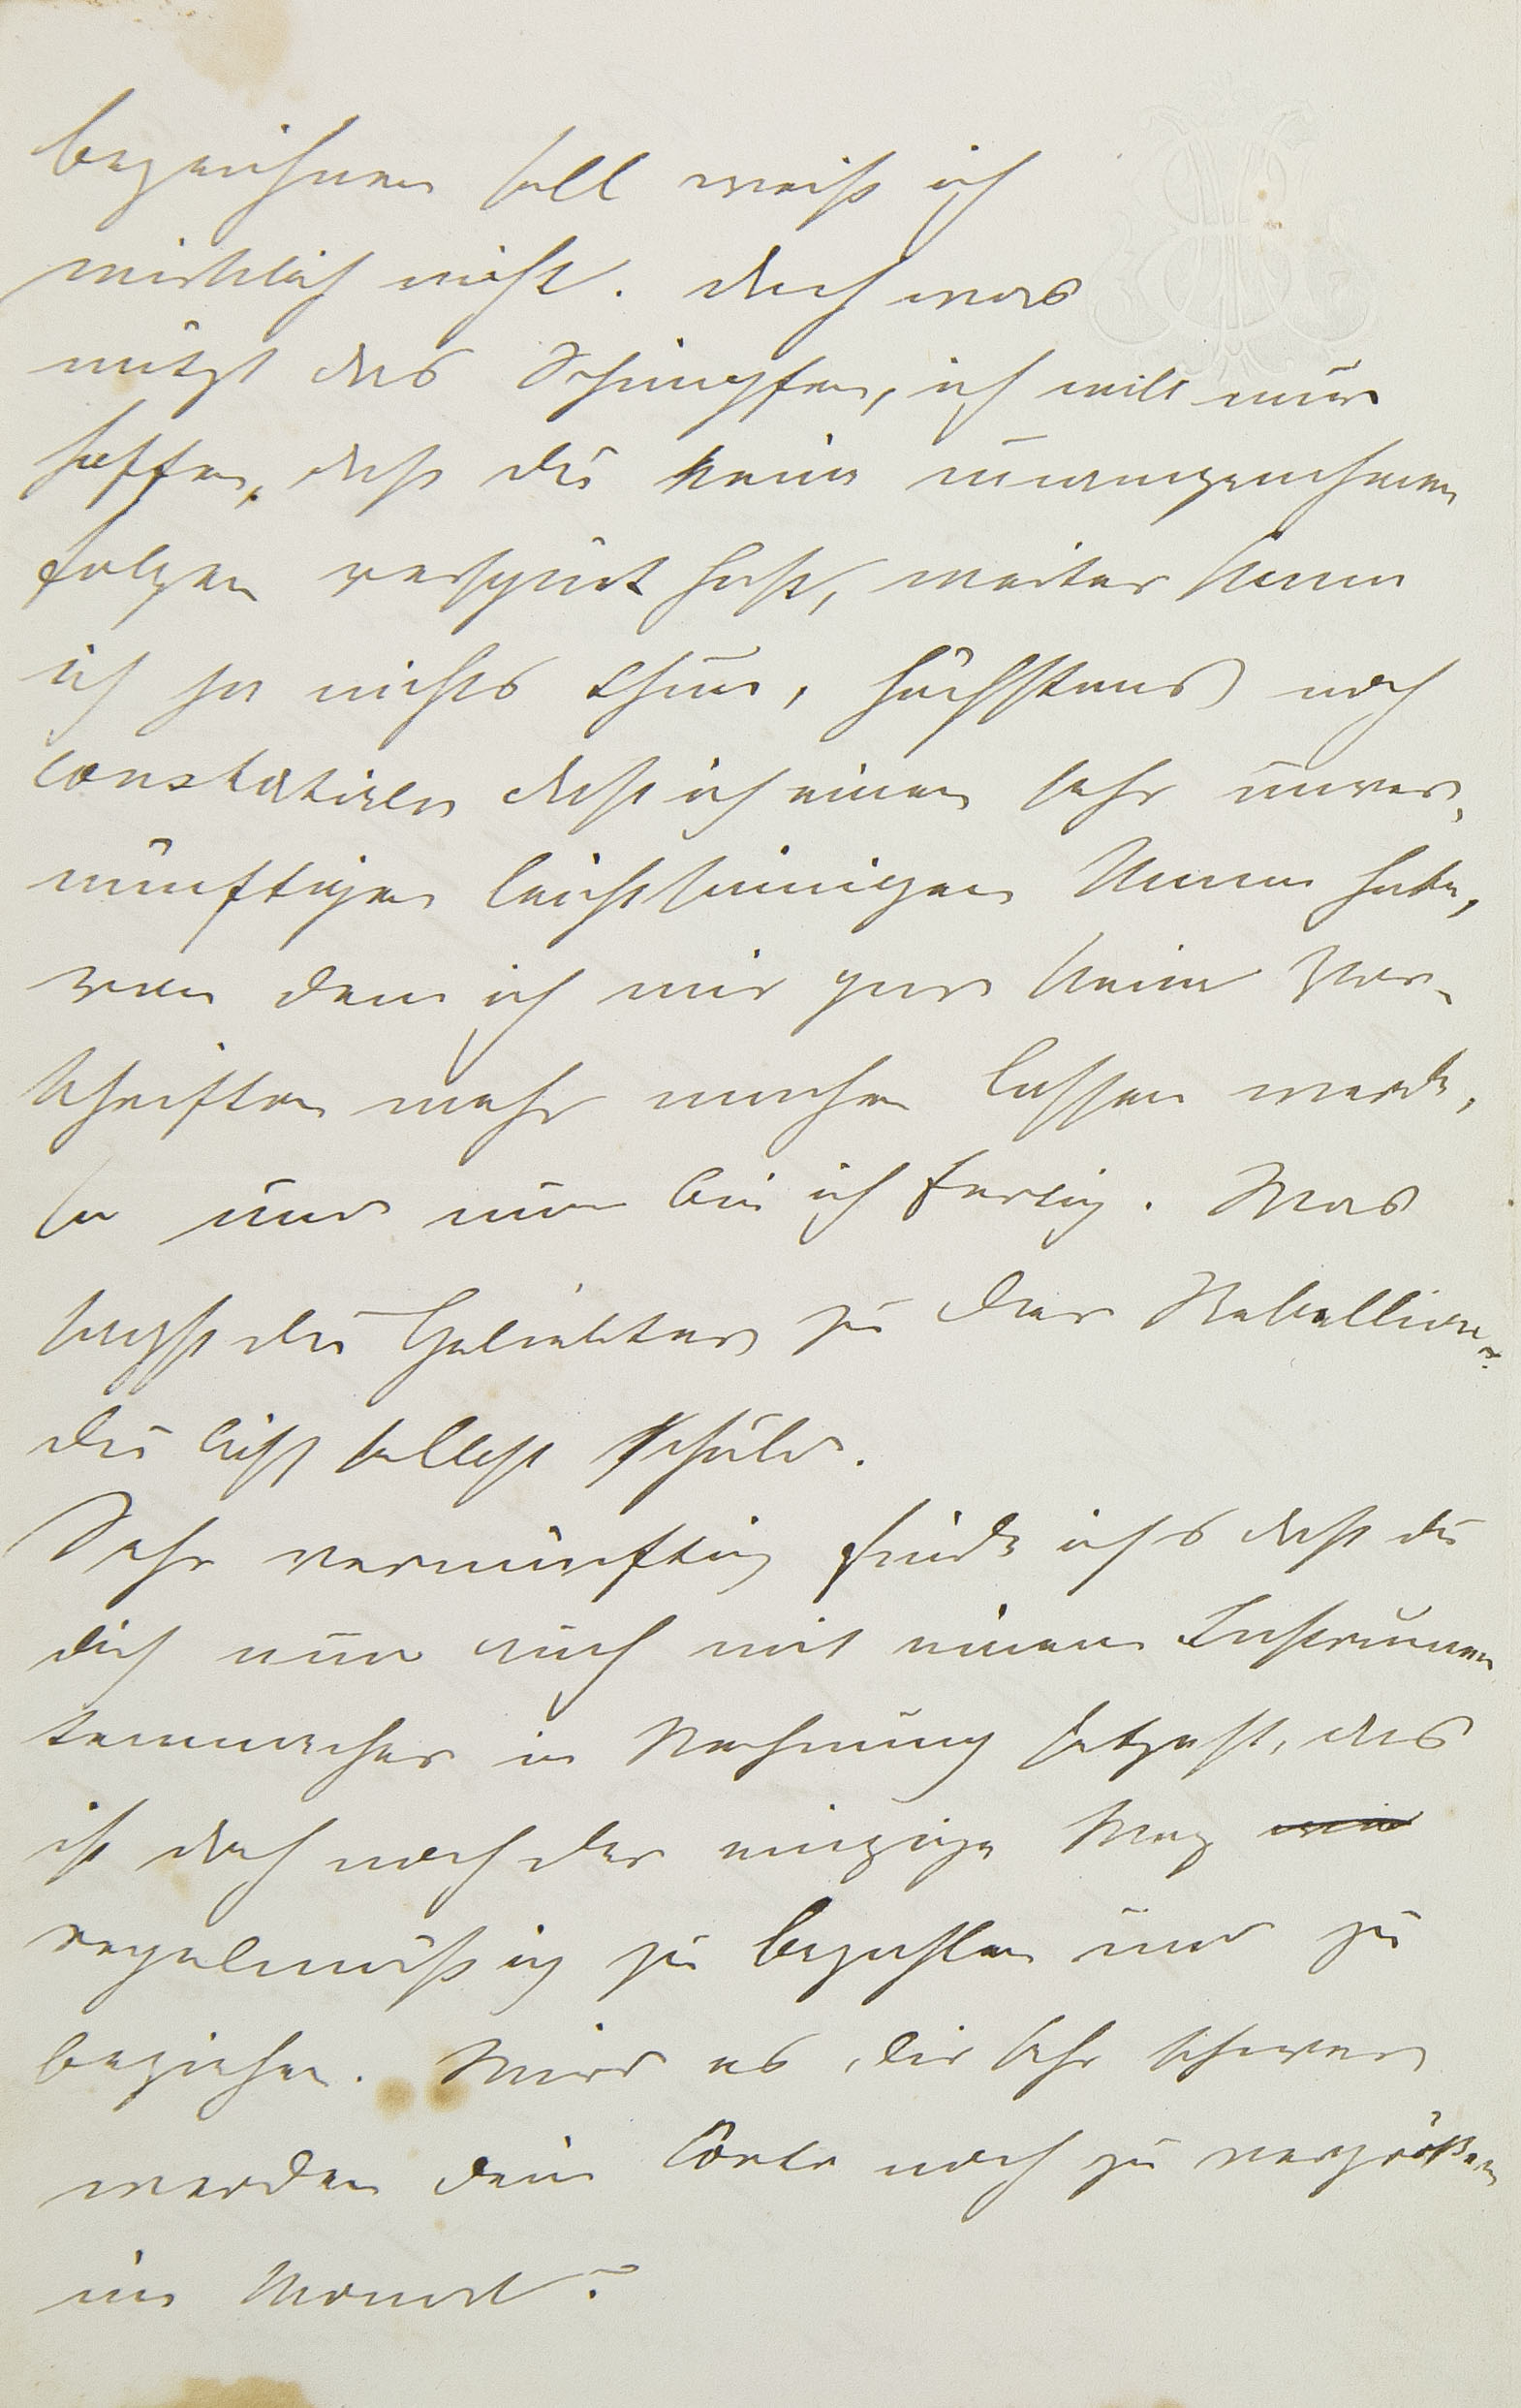 bezeichnen soll weiß ich
wirklich nicht. doch was
nützt das Schimpfen, ich will nur
hoffen, daß du keine unangenehmen
folgen verspürt hast, weiter kann
ich ja nichts thun, höchstens noch
constatiren daß ich einen sehr unver-
nünftigen leichtsinnigen Mann habe,
von dem ich mir gar keine Vor-
schriften mehr machen lassen werde,
so und nun bin ich fertig. Was
sagst du Geliebter zu der Rebellion?
du bist selbst schuld.
Sehr vernünftig finde ichs daß du
dich nun auch mit einem Instrumen
tenmacher in Rechnung setzest, das
ist doch noch der einzige Weg
regelmäßig zu bezahlen und zu
beziehen. Wird es dir sehr schwer
werden dein Conto noch zu vergrößern
im Monat?